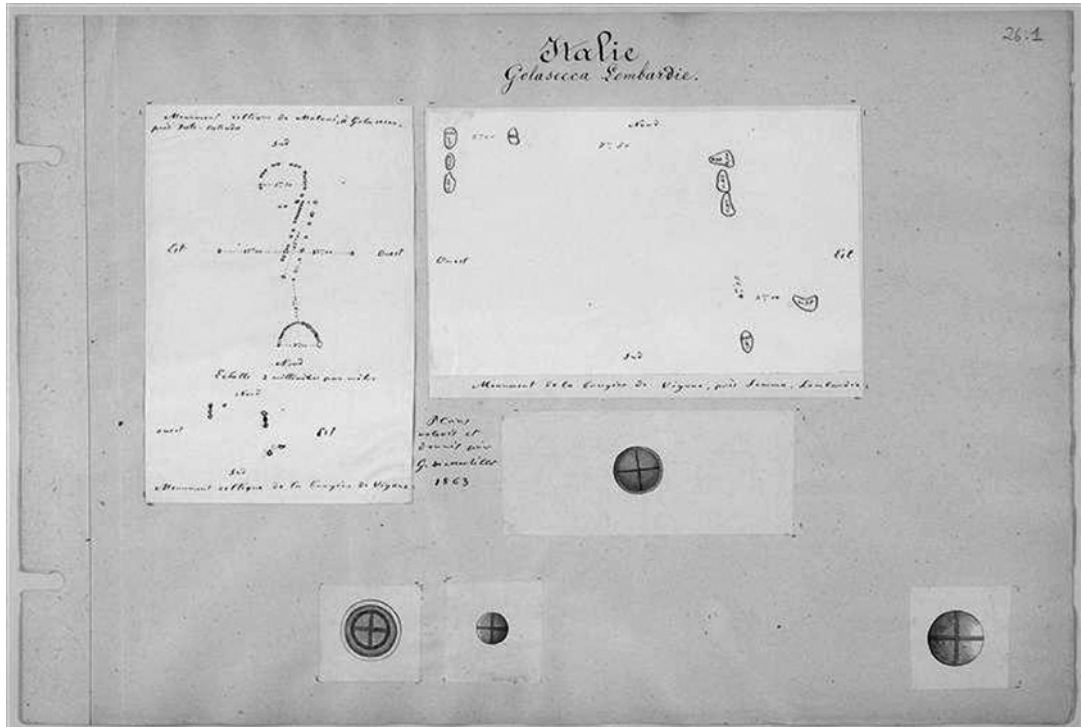 26:1
Italie
Golasecca Lombardie.
Monument celtique de à Golasecca,
près
Sud
Est
Ouest
Nord
Echelle 2 millimètres par mètre
Nord
ouest
Est
Sud
Monument celtique de la de Vigane.
Nord
Ouest
Est
Sud
Monument de la de Vigane, près Somma, Lombardie.
Plans
relevés et
donnés par
G. de Mortillet
1863